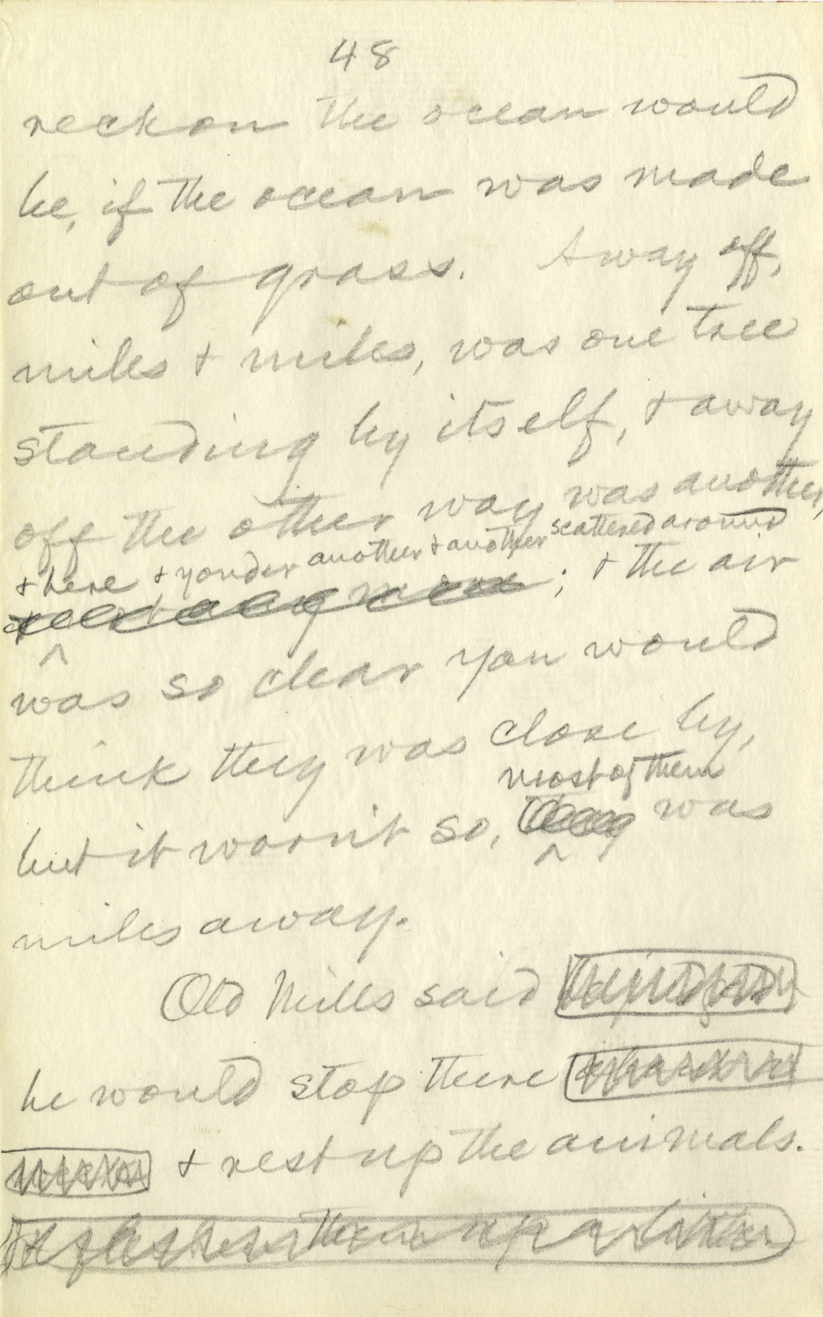 48
reckon the ocean would
be, if the ocean was made
out of grass. Away off,
miles + miles, was one tree
standing by itself, + away
off the other way was another,
+ here + yonder another + another scattered around
; + the air
was so clear you would
think they was close by,
most of them
but it warn't so, they was
miles away.
Old Mills said
he would stop there
+ rest up the animals.